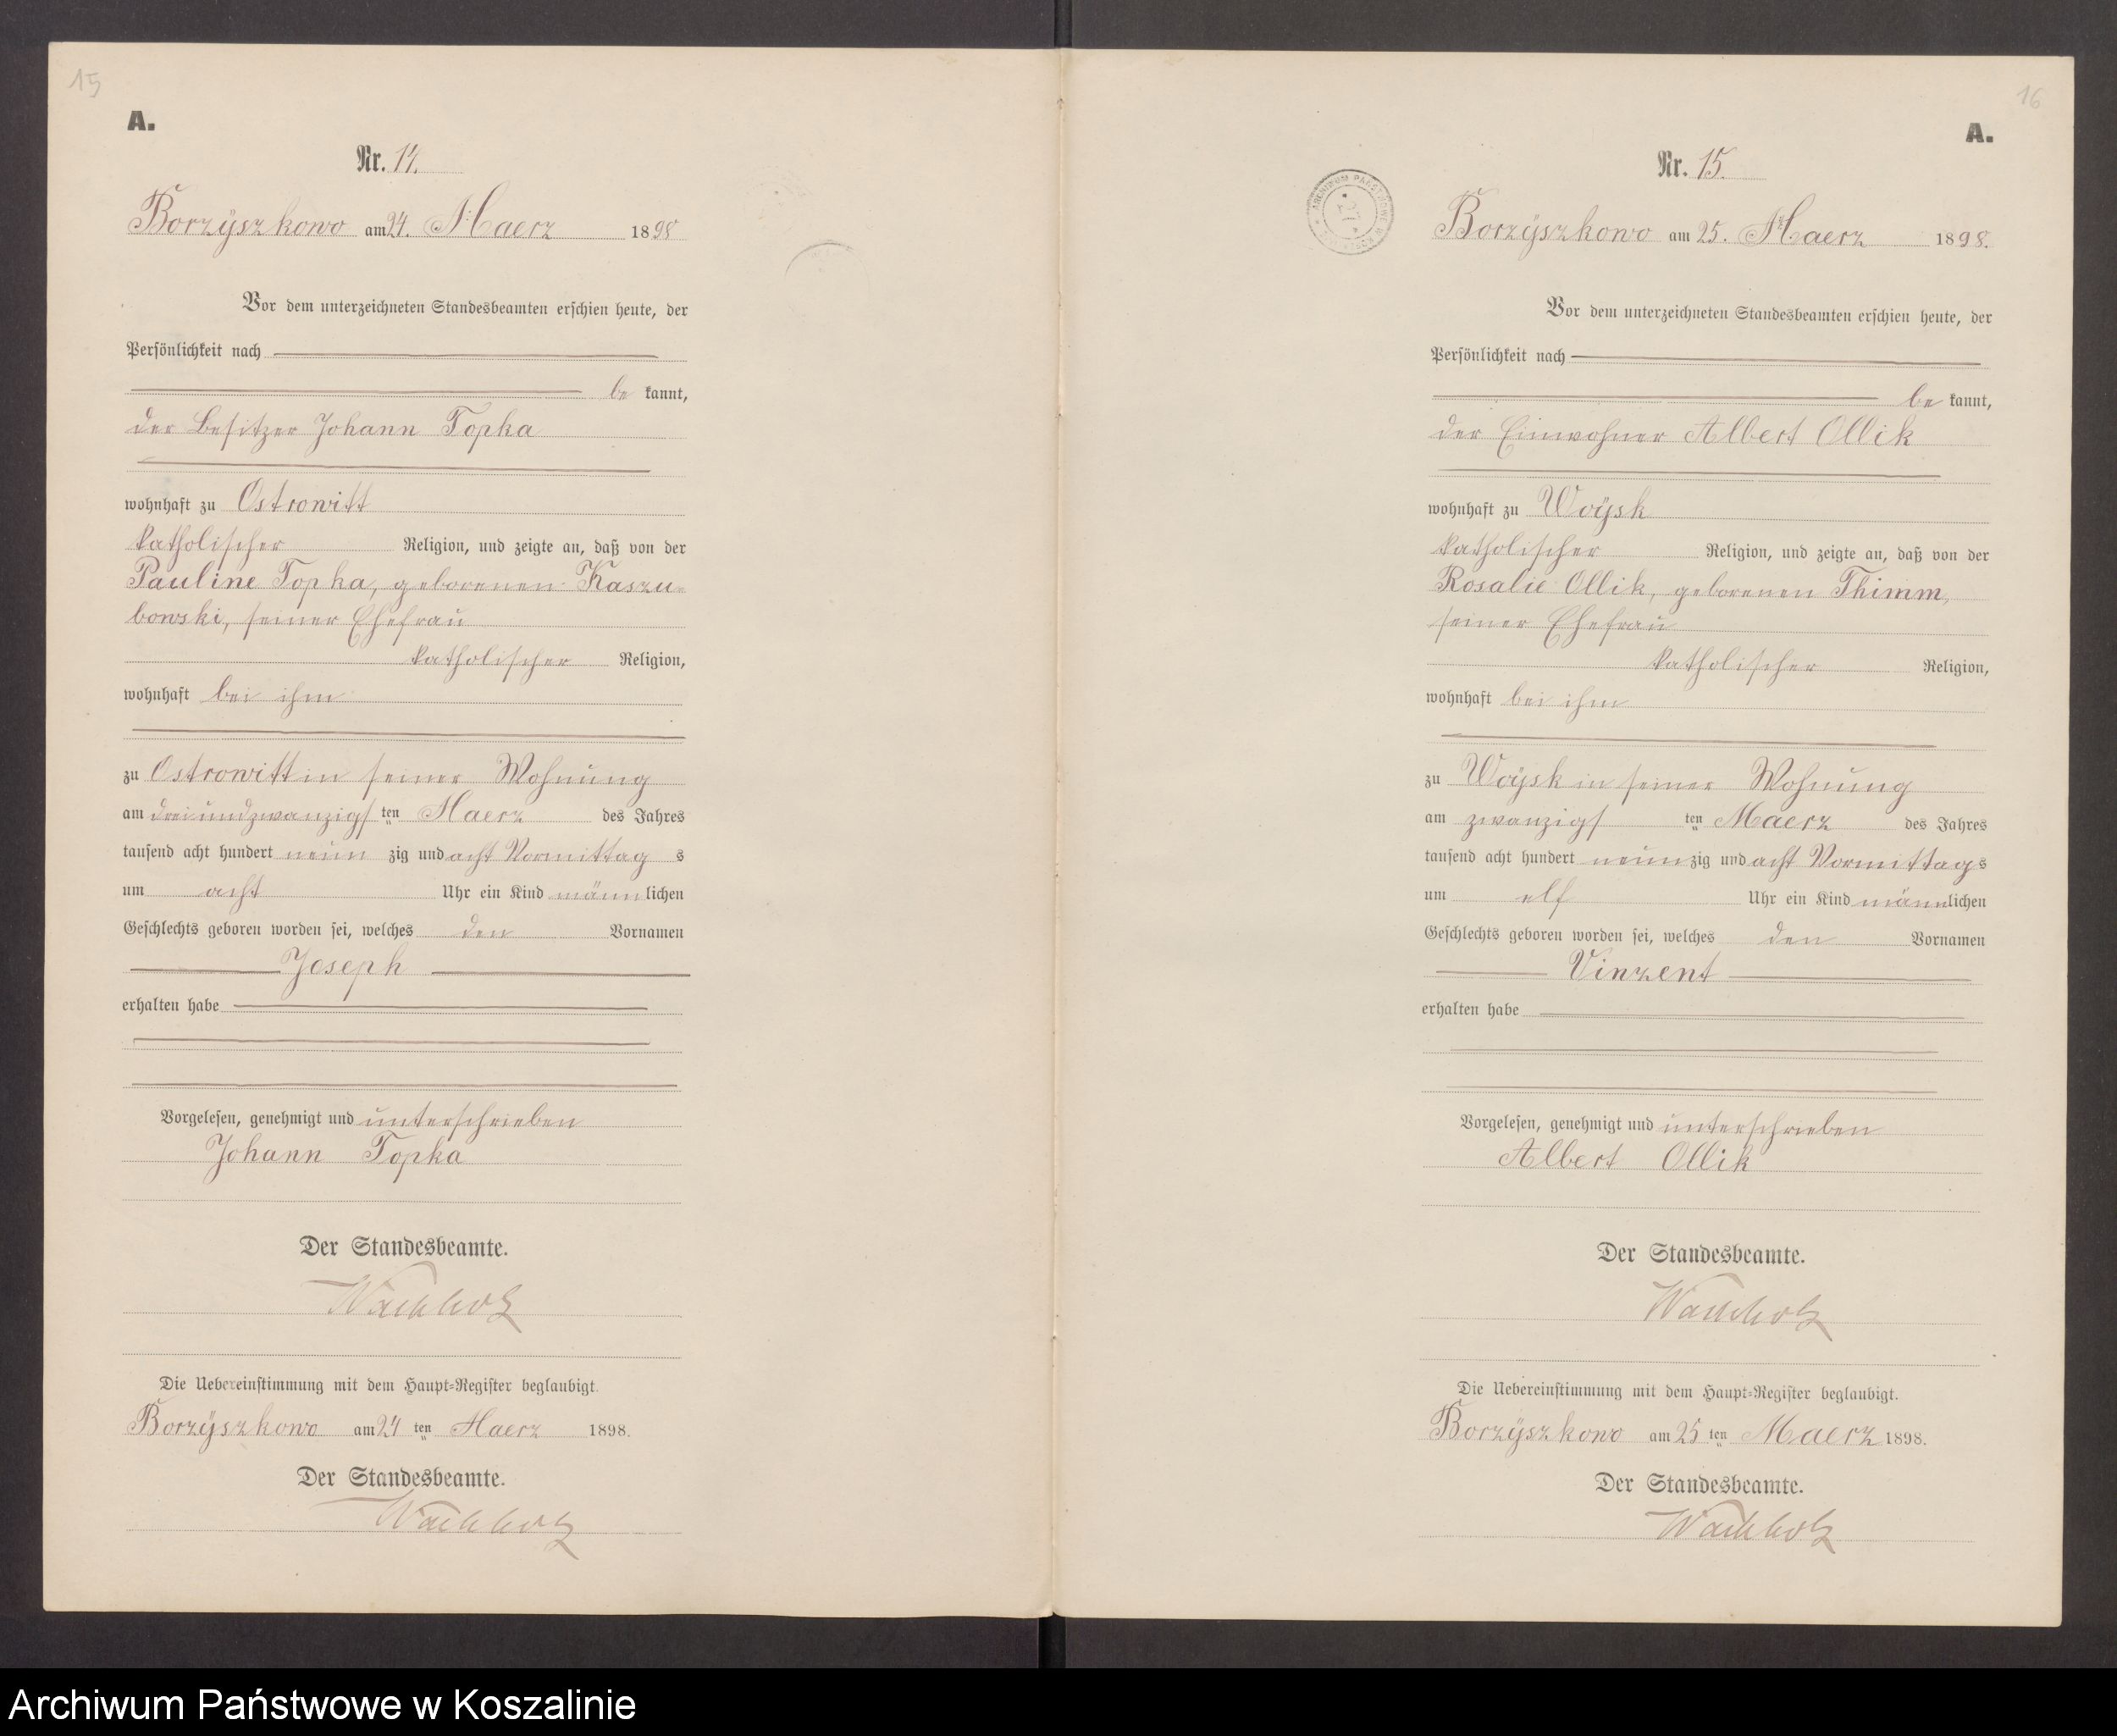 15
A.
Nr. 14.
Borzÿszkowo am 24. Maerz 1898
Vor dem unterzeichneten Standesbeamten erschien heute, der
Persönlichkeit nach
be kannt,
der Besitzer Johann Topka
wohnhaft zu Ostrowitt
katholischer Religion, und zeigte an, daß von der
Pauline Topka, geborenen Kaszu-
bowski, seiner Ehefrau
katholischer Religion,
wohnhaft bei ihm
zu Ostrowitt in seiner Wohnung
am dreiundzwanzigs ten Maerz des Jahres
tausend acht hundert neun zig und acht Vormittag s
um acht Uhr ein Kind männlichen
Geschlechts geboren worden sei, welches den Vornamen
Joseph
erhalten habe
Vorgelesen, genehmigt und unterschrieben
Johann Topka
Der Standesbeamte.
Wachholz
Die Uebereinstimmung mit dem Haupt-Register beglaubigt.
Borzÿszkowo am 24 ten Maerz 1898.
Der Standesbeamte.
Wachholz
16
A.
ARCHIWUM PAŃSTWOWE W
27
Nr. 15.
Borzÿszkowo am 25. Maerz 1898.
Vor dem unterzeichneten Standesbeamten erschien heute, der
Persönlichkeit nach
be kannt,
der Einwohner Albert Ollik
wohnhaft zu Woÿsk
katholischer Religion, und zeigte an, daß von der
Rosalie Ollik, geborenen Thimm,
seiner Ehefrau
katholischer Religion,
wohnhaft bei ihm
zu Woÿsk in seiner Wohnung
am zwanzigs ten Maerz des Jahres
tausend acht hundert neun zig und acht Vormittags
um elf Uhr ein Kind männlichen
Geschlechts geboren worden sei, welches den Vornamen
Vinzent
erhalten habe
Vorgelesen, genehmigt und unterschrieben
Albert Ollik
Der Standesbeamte.
Wachholz
Die Uebereinstimmung mit dem Haupt-Register beglaubigt.
Borzÿszkowo am 25 ten Maerz 1898.
Der Standesbeamte.
Wachholz
Archiwum Państwowe w Koszalinie